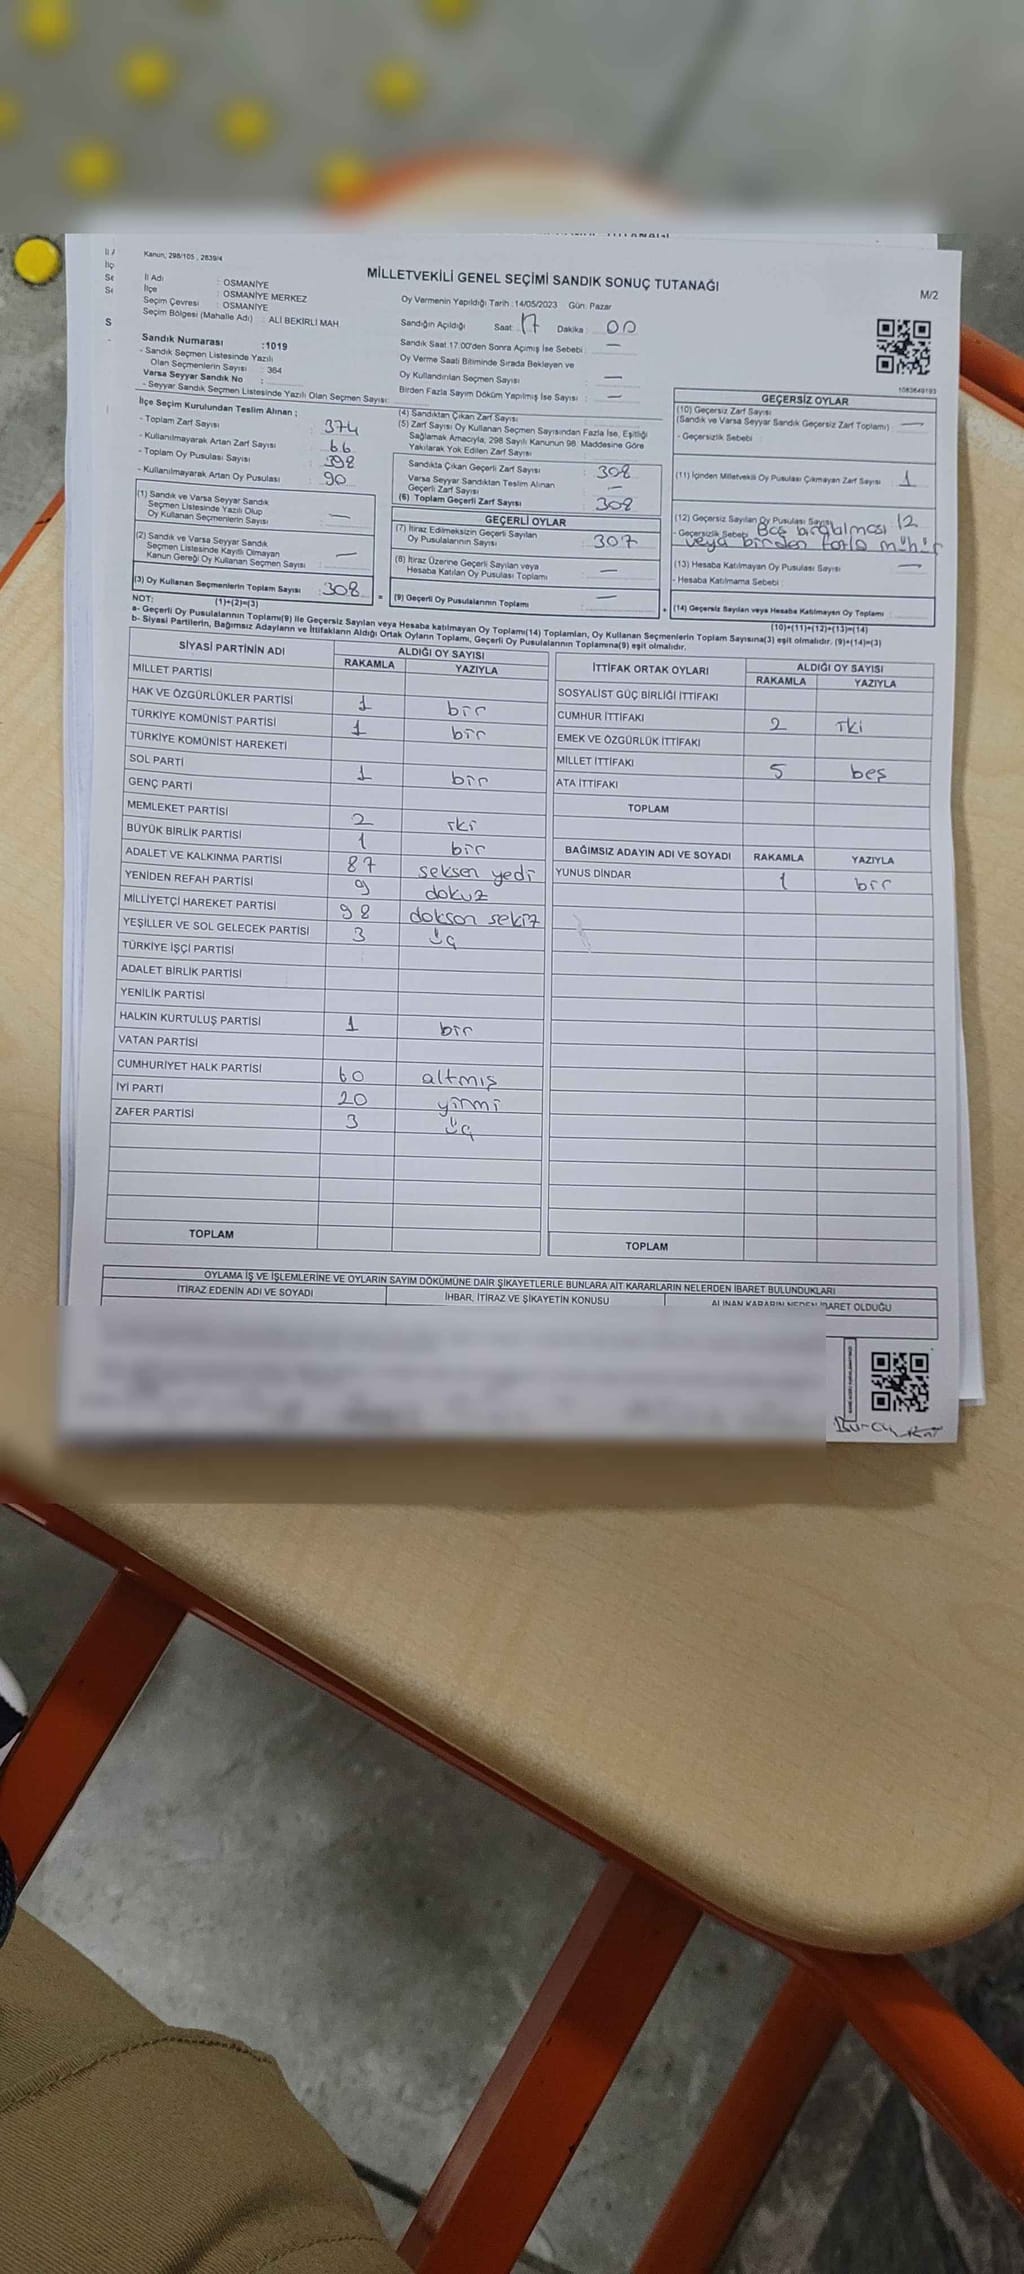 Kanun, 298/105 , 2839/4
MİLLETVEKİLİ GENEL SEÇİMİ SANDIK SONUÇ TUTANAĞI
M/2
İl Adı : OSMANİYE
İlçe : OSMANİYE MERKEZ
Seçim Çevresi : OSMANİYE
Seçim Bölgesi (Mahalle Adı) : ALİ BEKİRLİ MAH
Oy Vermenin Yapıldığı Tarih : 14/05/2023 Gün: Pazar
Sandığın Açıldığı Saat: 17 Dakika : 00
Sandık Saat 17:00'den Sonra Açılmış İse Sebebi : —
Oy Verme Saati Bitiminde Sırada Bekleyen ve
Oy Kullandırılan Seçmen Sayısı : —
Birden Fazla Sayım Döküm Yapılmış İse Sayısı : —
Sandık Numarası :1019
- Sandık Seçmen Listesinde Yazılı
Olan Seçmenlerin Sayısı : 364
Varsa Seyyar Sandık No :
- Seyyar Sandık Seçmen Listesinde Yazılı Olan Seçmen Sayısı:
1083649193
İlçe Seçim Kurulundan Teslim Alınan ;
- Toplam Zarf Sayısı : 374
- Kullanılmayarak Artan Zarf Sayısı : 66
- Toplam Oy Pusulası Sayısı : 398
- Kullanılmayarak Artan Oy Pusulası : 90
(1) Sandık ve Varsa Seyyar Sandık
Seçmen Listesinde Yazılı Olup
Oy Kullanan Seçmenlerin Sayısı : —
(2) Sandık ve Varsa Seyyar Sandık
Seçmen Listesinde Kayıtlı Olmayan
Kanun Gereği Oy Kullanan Seçmen Sayısı : —
(3) Oy Kullanan Seçmenlerin Toplam Sayısı : 308
(1)+(2)=(3)
(4) Sandıktan Çıkan Zarf Sayısı :
(5) Zarf Sayısı Oy Kullanan Seçmen Sayısından Fazla İse, Eşitliği
Sağlamak Amacıyla, 298 Sayılı Kanunun 98. Maddesine Göre
Yakılarak Yok Edilen Zarf Sayısı :
Sandıkta Çıkan Geçerli Zarf Sayısı : 308
Varsa Seyyar Sandıktan Teslim Alınan
Geçerli Zarf Sayısı : —
(6) Toplam Geçerli Zarf Sayısı : 308
GEÇERLİ OYLAR
(7) İtiraz Edilmeksizin Geçerli Sayılan
Oy Pusulalarının Sayısı : 307
(8) İtiraz Üzerine Geçerli Sayılan veya
Hesaba Katılan Oy Pusulası Toplamı : —
(9) Geçerli Oy Pusulalarının Toplamı : —
GEÇERSİZ OYLAR
(10) Geçersiz Zarf Sayısı
(Sandık ve Varsa Seyyar Sandık Geçersiz Zarf Toplamı) : —
- Geçersizlik Sebebi :
(11) İçinden Milletvekili Oy Pusulası Çıkmayan Zarf Sayısı : 1
(12) Geçersiz Sayılan Oy Pusulası Sayısı : 12
- Geçersizlik Sebebi : Boş bırakılması
veya birden fazla mühür
(13) Hesaba Katılmayan Oy Pusulası Sayısı : —
- Hesaba Katılmama Sebebi :
(14) Geçersiz Sayılan veya Hesaba Katılmayan Oy Toplamı :
(10)+(11)+(12)+(13)=(14)
NOT:
a- Geçerli Oy Pusulalarının Toplamı(9) ile Geçersiz Sayılan veya Hesaba katılmayan Oy Toplamı(14) Toplamları, Oy Kullanan Seçmenlerin Toplam Sayısına(3) eşit olmalıdır. (9)+(14)=(3)
b- Siyasi Partilerin, Bağımsız Adayların ve İttifakların Aldığı Ortak Oyların Toplamı, Geçerli Oy Pusulalarının Toplamına(9) eşit olmalıdır.
SİYASİ PARTİNİN ADI ALDIĞI OY SAYISI
RAKAMLA YAZIYLA
MİLLET PARTİSİ
HAK VE ÖZGÜRLÜKLER PARTİSİ 1 bir
TÜRKİYE KOMÜNİST PARTİSİ 1 bir
TÜRKİYE KOMÜNİST HAREKETİ
SOL PARTİ 1 bir
GENÇ PARTİ
MEMLEKET PARTİSİ 2 iki
BÜYÜK BİRLİK PARTİSİ 1 bir
ADALET VE KALKINMA PARTİSİ 87 seksen yedi
YENİDEN REFAH PARTİSİ 9 dokuz
MİLLİYETÇİ HAREKET PARTİSİ 98 dokson sekiz
YEŞİLLER VE SOL GELECEK PARTİSİ 3 üç
TÜRKİYE İŞÇİ PARTİSİ
ADALET BİRLİK PARTİSİ
YENİLİK PARTİSİ
HALKIN KURTULUŞ PARTİSİ 1 bir
VATAN PARTİSİ
CUMHURİYET HALK PARTİSİ 60 altmış
İYİ PARTİ 20 yirmi
ZAFER PARTİSİ 3 üç
TOPLAM
İTTİFAK ORTAK OYLARI ALDIĞI OY SAYISI
RAKAMLA YAZIYLA
SOSYALİST GÜÇ BİRLİĞİ İTTİFAKI
CUMHUR İTTİFAKI 2 iki
EMEK VE ÖZGÜRLÜK İTTİFAKI
MİLLET İTTİFAKI 5 beş
ATA İTTİFAKI
TOPLAM
BAĞIMSIZ ADAYIN ADI VE SOYADI RAKAMLA YAZIYLA
YUNUS DİNDAR 1 bir
TOPLAM
OYLAMA İŞ VE İŞLEMLERİNE VE OYLARIN SAYIM DÖKÜMÜNE DAİR ŞİKAYETLERLE BUNLARA AİT KARARLARIN NELERDEN İBARET BULUNDUKLARI
İTİRAZ EDENİN ADI VE SOYADI İHBAR, İTİRAZ VE ŞİKAYETİN KONUSU ALINAN KARARIN NEDEN İBARET OLDUĞU